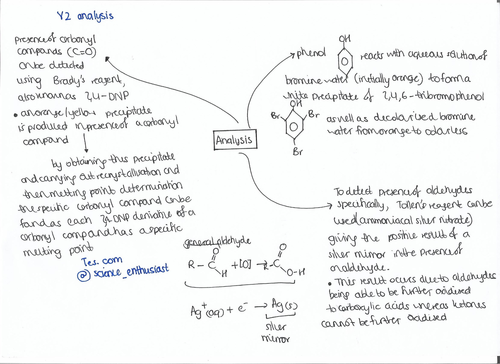 Y2 analysis
presence of carbonyl
compounds (C=O)
can be detected
using Brady's reagent,
also known as 2,4-DNP
• an orange/yellow precipitate
is produced in presence of a carbonyl
compound
by obtaining this precipitate
and carrying out recrystallisation and
then melting point determination
the specific carbonyl compound can be
found as each 2,4 DNP derivative of a
carbonyl compound has a specific
melting point
Tes.com
@science_enthusiast
Analysis
phenol
OH
reacts with aqueous solution of
bromine water (initially orange) to form a
white precipitate of 2,4,6-tribromophenol
OH
Br
Br
Br
as well as decolorised bromine
water from orange to colorless
To detect presence of aldehydes
specifically, Tollen's reagent can be
used (ammoniacal silver nitrate)
giving the positive result of a
silver mirror in the presence of
an aldehyde.
• This result occurs due to aldehydes
being able to be further oxidised
to carboxylic acids whereas ketones
cannot be further oxidised
general aldehyde
R-C O H +[O] → R-C O O-H
Ag+(aq) + e- → Ag(s)
silver
mirror